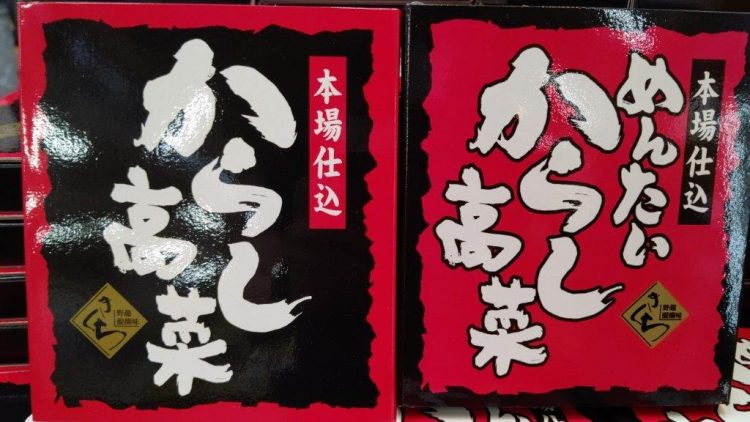 本場仕込
からし
高菜
本場仕込
めんたい
からし
高菜